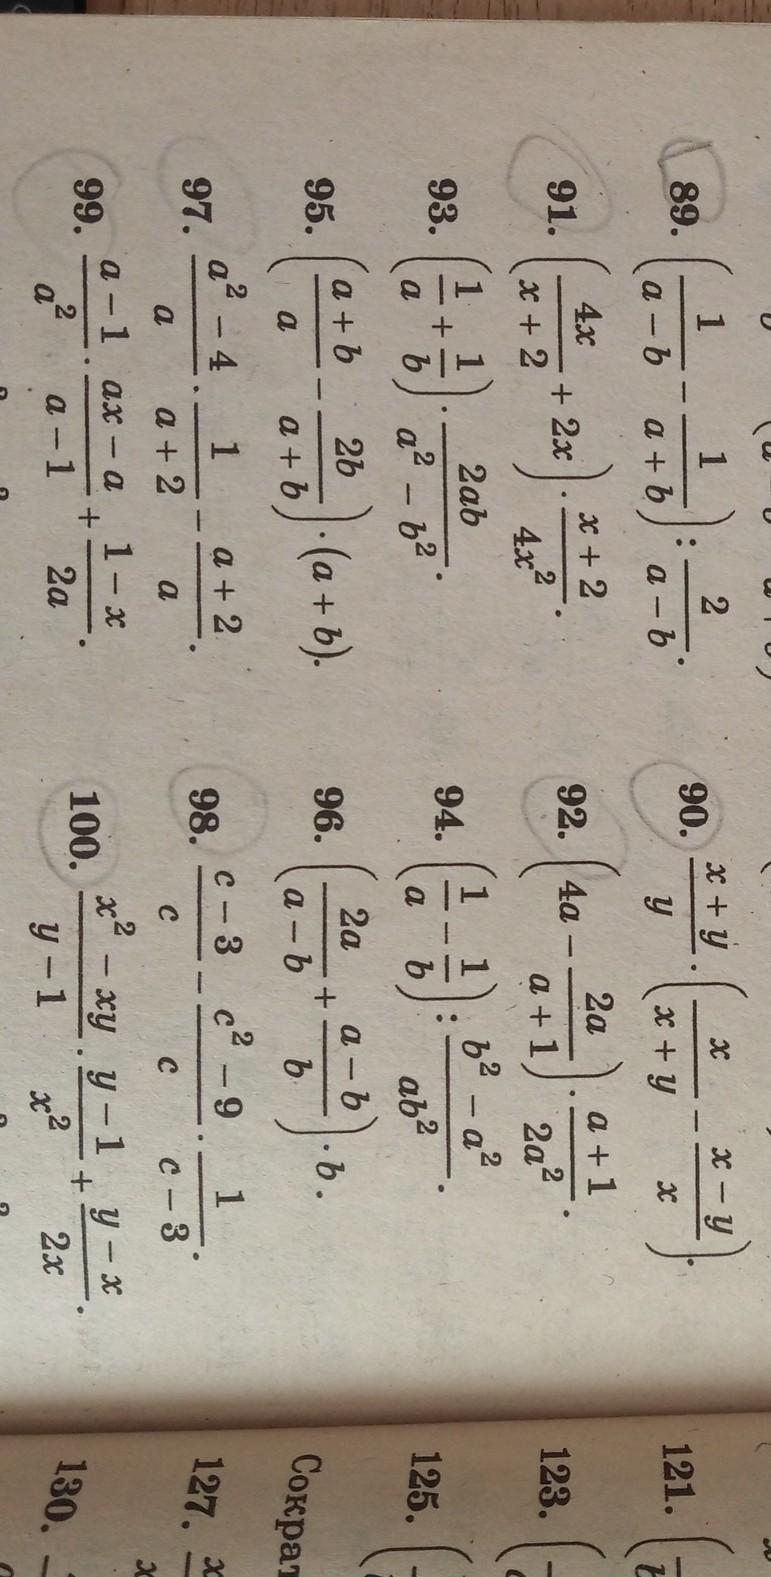 89. (1/(a − b) − 1/(a + b)) : 2/(a − b).
90. (x + y)/y · (x/(x + y) − (x − y)/x).
91. (4x/(x + 2) + 2x) · (x + 2)/(4x²).
92. (4a − 2a/(a + 1)) · (a + 1)/(2a²).
93. (1/a + 1/b) · 2ab/(a² − b²).
94. (1/a − 1/b) : (b² − a²)/(ab²).
95. ((a + b)/a − 2b/(a + b)) · (a + b).
96. (2a/(a − b) + (a − b)/b) · b.
97. (a² − 4)/a · 1/(a + 2) − (a + 2)/a.
98. (c − 3)/c − (c² − 9)/c · 1/(c − 3).
99. (a − 1)/a² · (ax − a)/(a − 1) + (1 − x)/(2a).
100. (x² − xy)/(y − 1) · (y − 1)/x² + (y − x)/(2x).
121. (
123. (
125. (
Сократ
127. x
130.